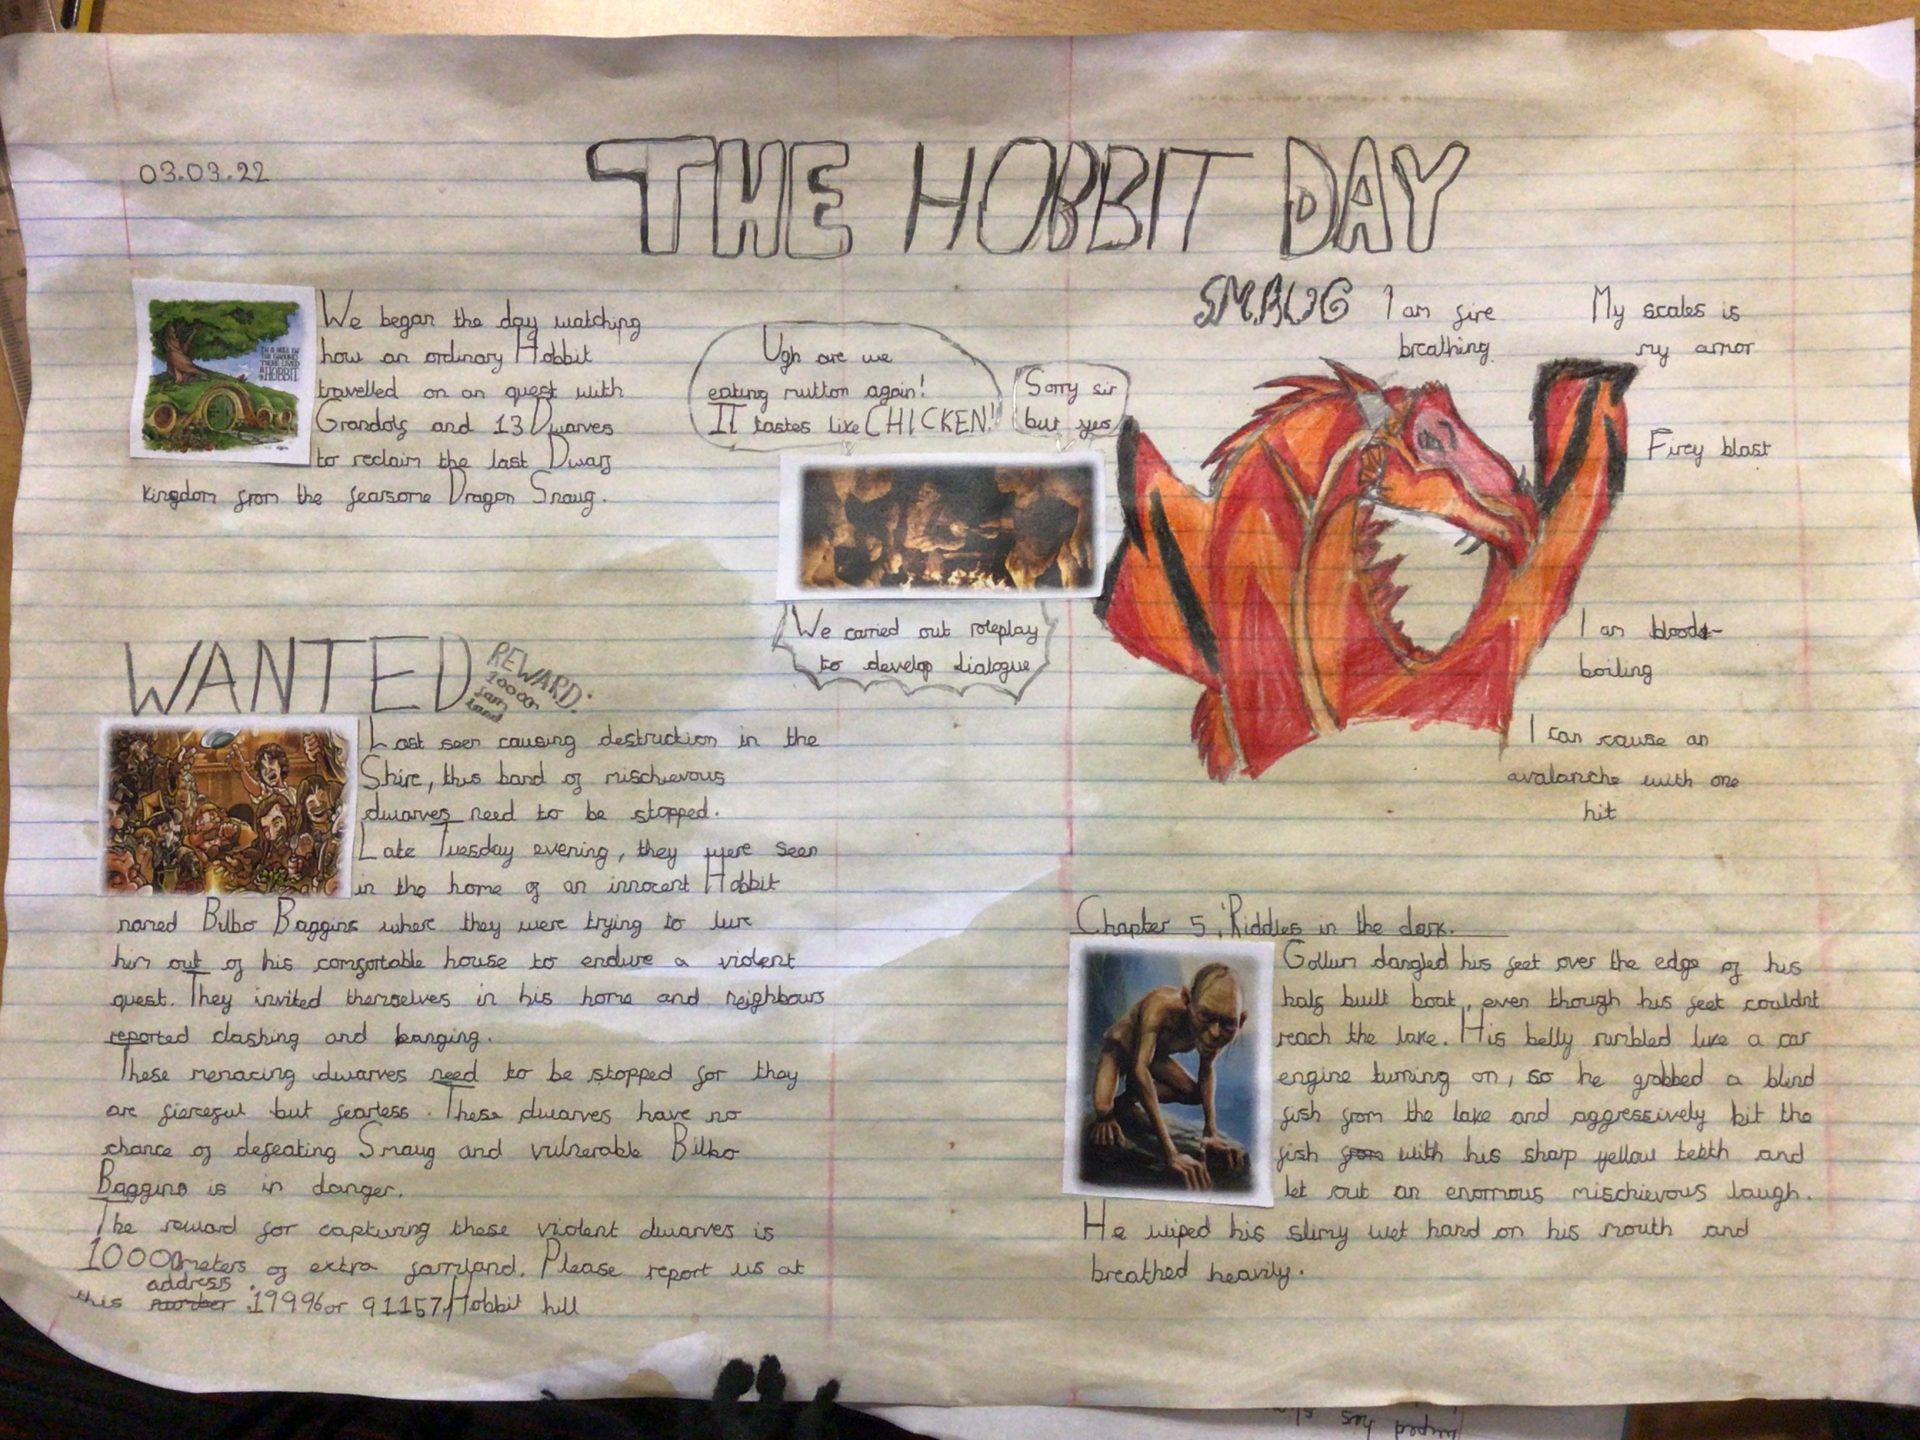 03.03.22
THE HOBBIT DAY
We began the day watching
how an ordinary Hobbit
travelled on an quest with
Grandolf and 13 Dwarves
to reclaim the last Dwarf
kingdom from the fearsome Dragon Smaug.
IN A HOLE IN
THE GROUND
THERE LIVED
A HOBBIT
Ugh are we
eating mutton again!
IT tastes like CHICKEN!
Sorry sir
but yes
We carried out roleplay
to develop dialogue
SMAUG
I am fire
breathing
My scales is
my armor
Firey blast
I am blood-
boiling
I can cause an
avalanche with one
hit
WANTED
REWARD:
10000
farm
land
Last seen causing destruction in the
Shire, this band of mischievous
dwarves need to be stopped.
Late Tuesday evening, they were seen
in the home of an innocent Hobbit
named Bilbo Baggins where they were trying to lure
him out of his comfortable house to endure a violent
quest. They invited themselves in his home and neighbours
reported clashing and banging.
These menacing dwarves need to be stopped for they
are fierceful but fearless. These dwarves have no
chance of defeating Smaug and vulnerable Bilbo
Baggins is in danger.
The reward for capturing these violent dwarves is
10000 meters of extra farmland. Please report us at
this number address 19996 or 91157, Hobbit hill
Chapter 5, 'Riddles in the dark.
Gollum dangled his feet over the edge of his
half built boat, even though his feet couldnt
reach the lake. His belly rumbled like a car
engine turning on, so he grabbed a blind
fish from the lake and aggressively bit the
fish from with his sharp yellow teeth and
let out an enormous mischievous laugh.
He wiped his slimy wet hand on his mouth and
breathed heavily.